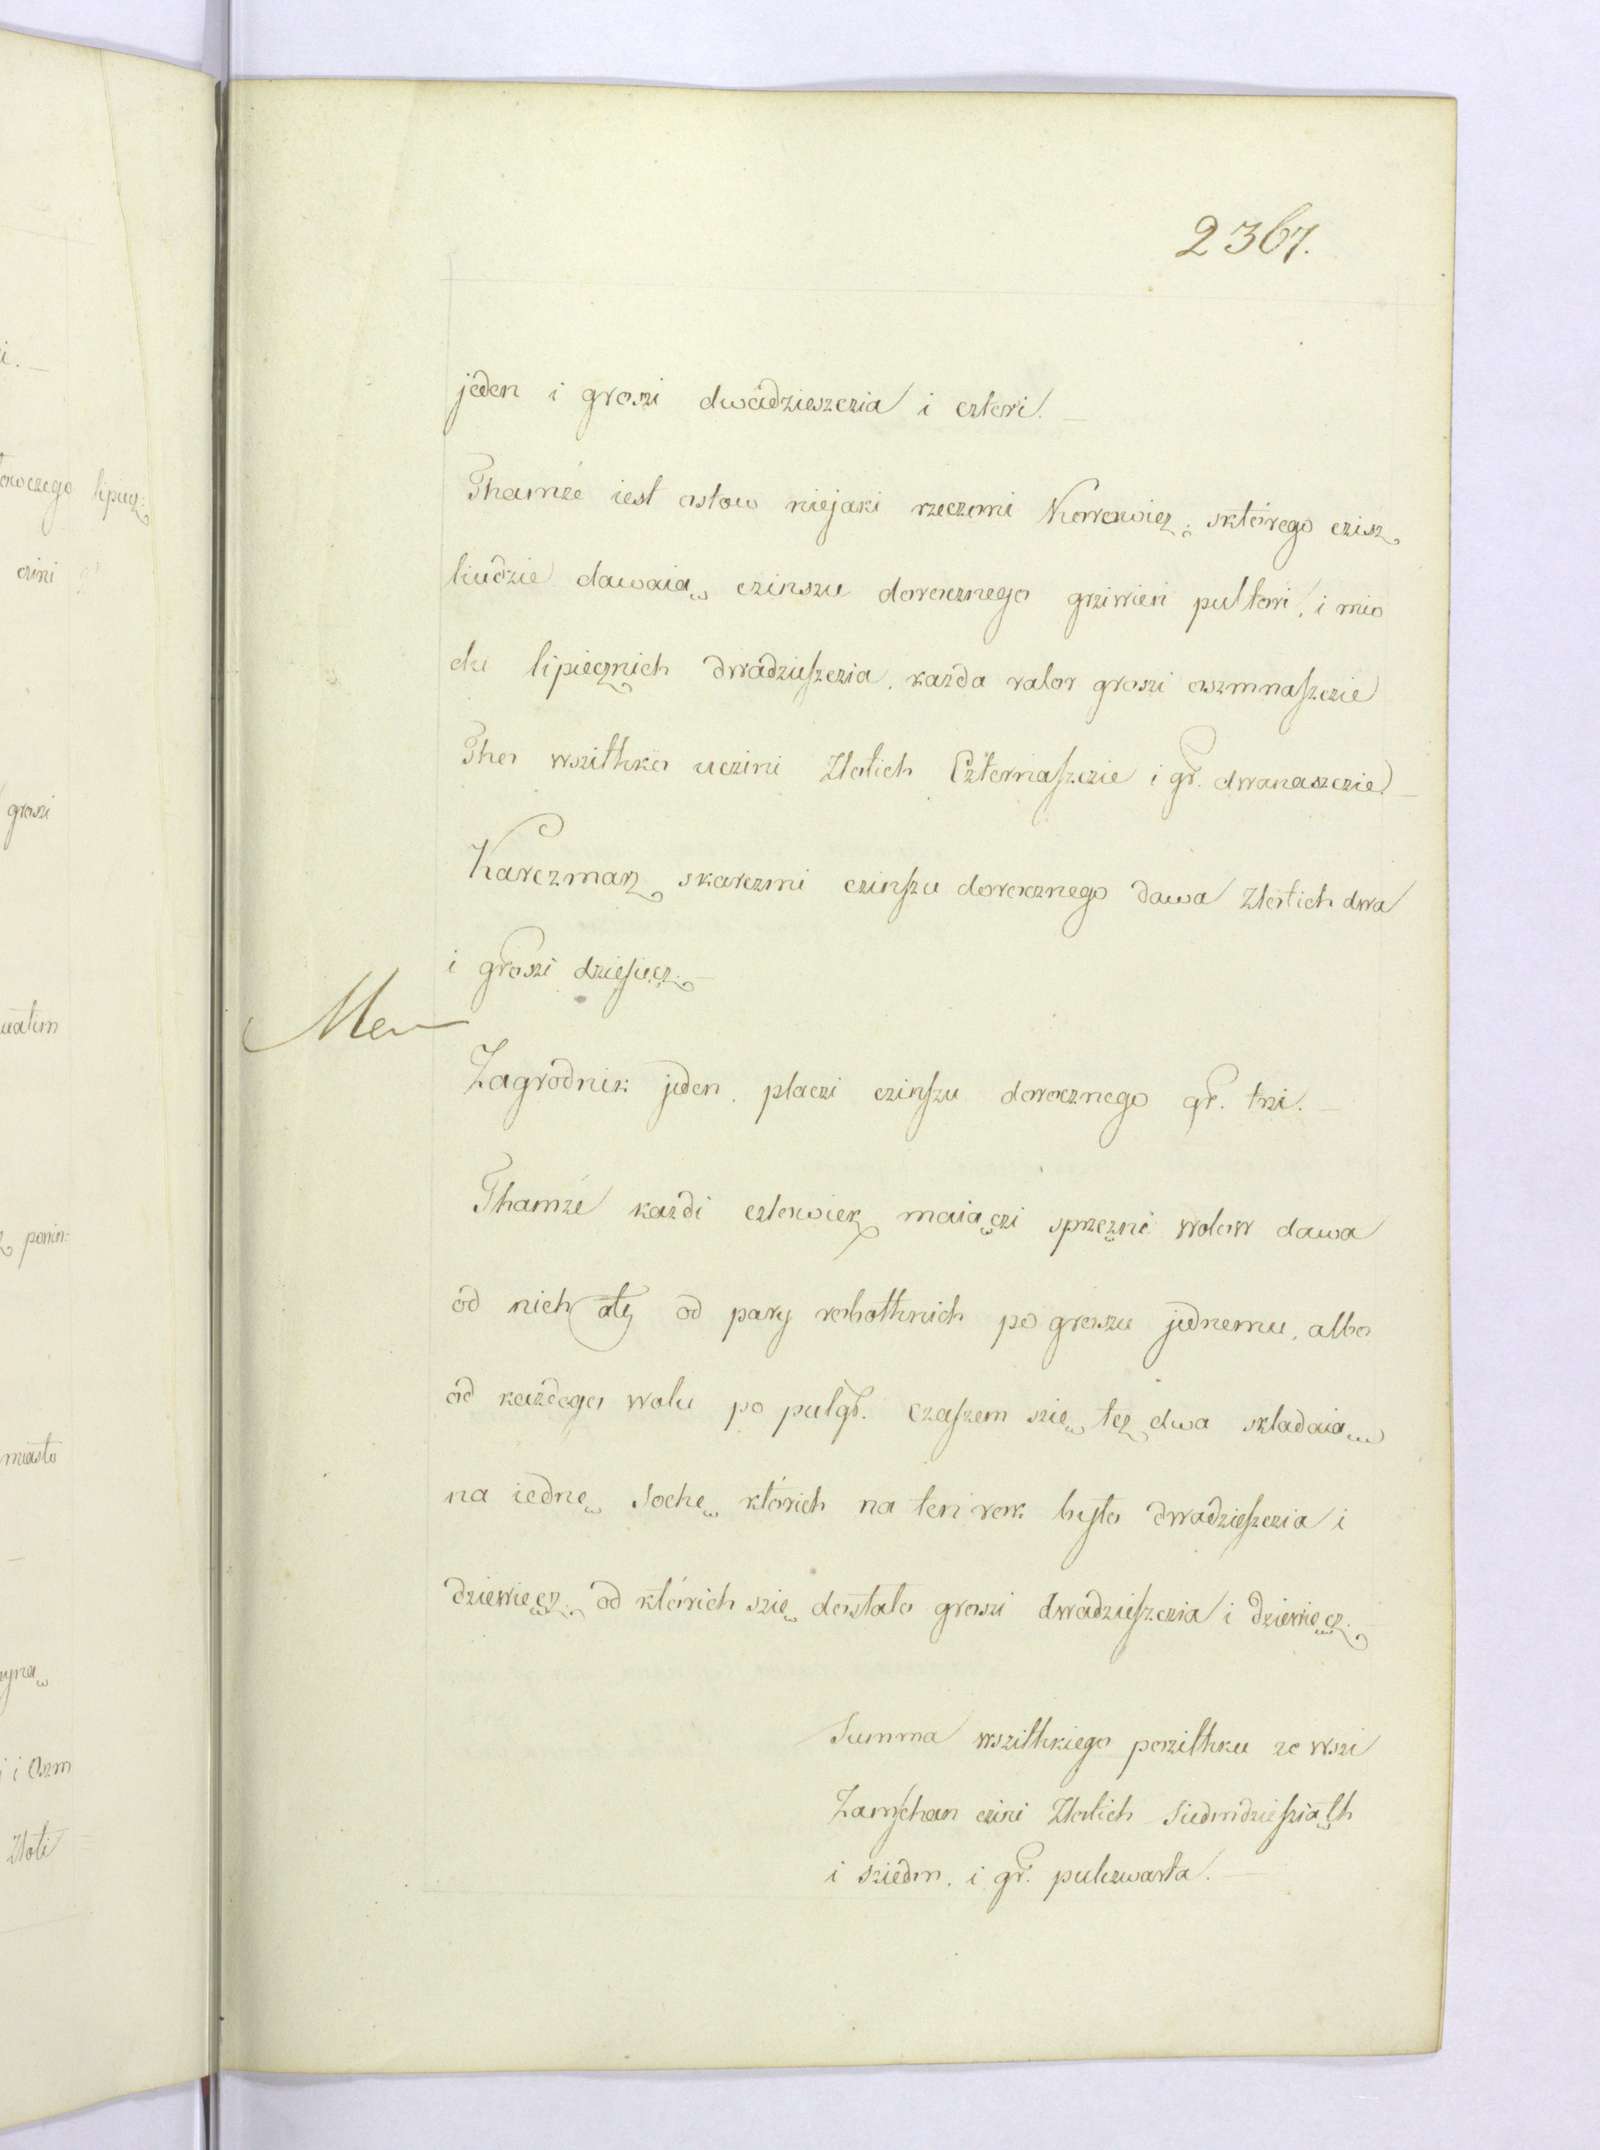 2367.
jeden i groszi dwadzieszczia i cztori.
Thamże iest ostow niejaki rzeczoni sktórego czisz
liudzie dawaią czinszu dorocznego grziwien pultori, i mio
du lipiecznich dwadzieszczia, każda valor groszi oszmnaszczie
Tho wszithko uczini Zlotich Czternaszczie i gr. dwanaszczie.
Karczmarz skarczmi czinszu dorocznego dawa Zlotich dwa
i groszi dziesiecz.
Zagrodnik jeden, placzi czinszu dorocznego gr. trzi.
Thamże każdi czlowiek maiączi sprzężni wolow dawa
od nich aly od pary robothnich po groszu jednemu, albo
od każdego wolu po pulgr. Czaszem szię tez dwa skladaią
na iednę Sochę ktorich na ten rok bylo dwadzieszczia i
dziewięcz, od ktorich szię dostalo groszi dwadzieszczia i dziewięcz.
Summa wszithkiego pozithku ze wszi
Zamschan czini Zlotich Siedmdziesziąth
i sziedm, i gr. pulczwarta.
lipcz:
czini
groszi
powin:
miasto
i Oszm
Zloti